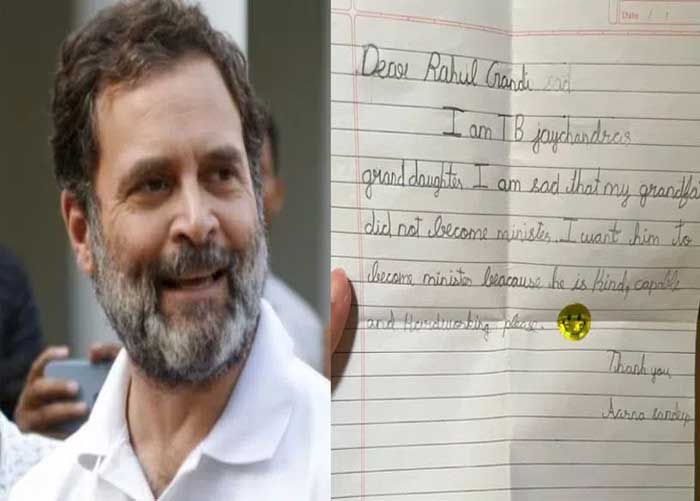 Date / /
Dear Rahul Grandi sad
I am TB jaychandras
granddaughter I am sad that my grandfa
did not become minister. I want him to
become minister beacause he is kind, capable
and Hardworking please.
Thank you
Aarna Sandeep